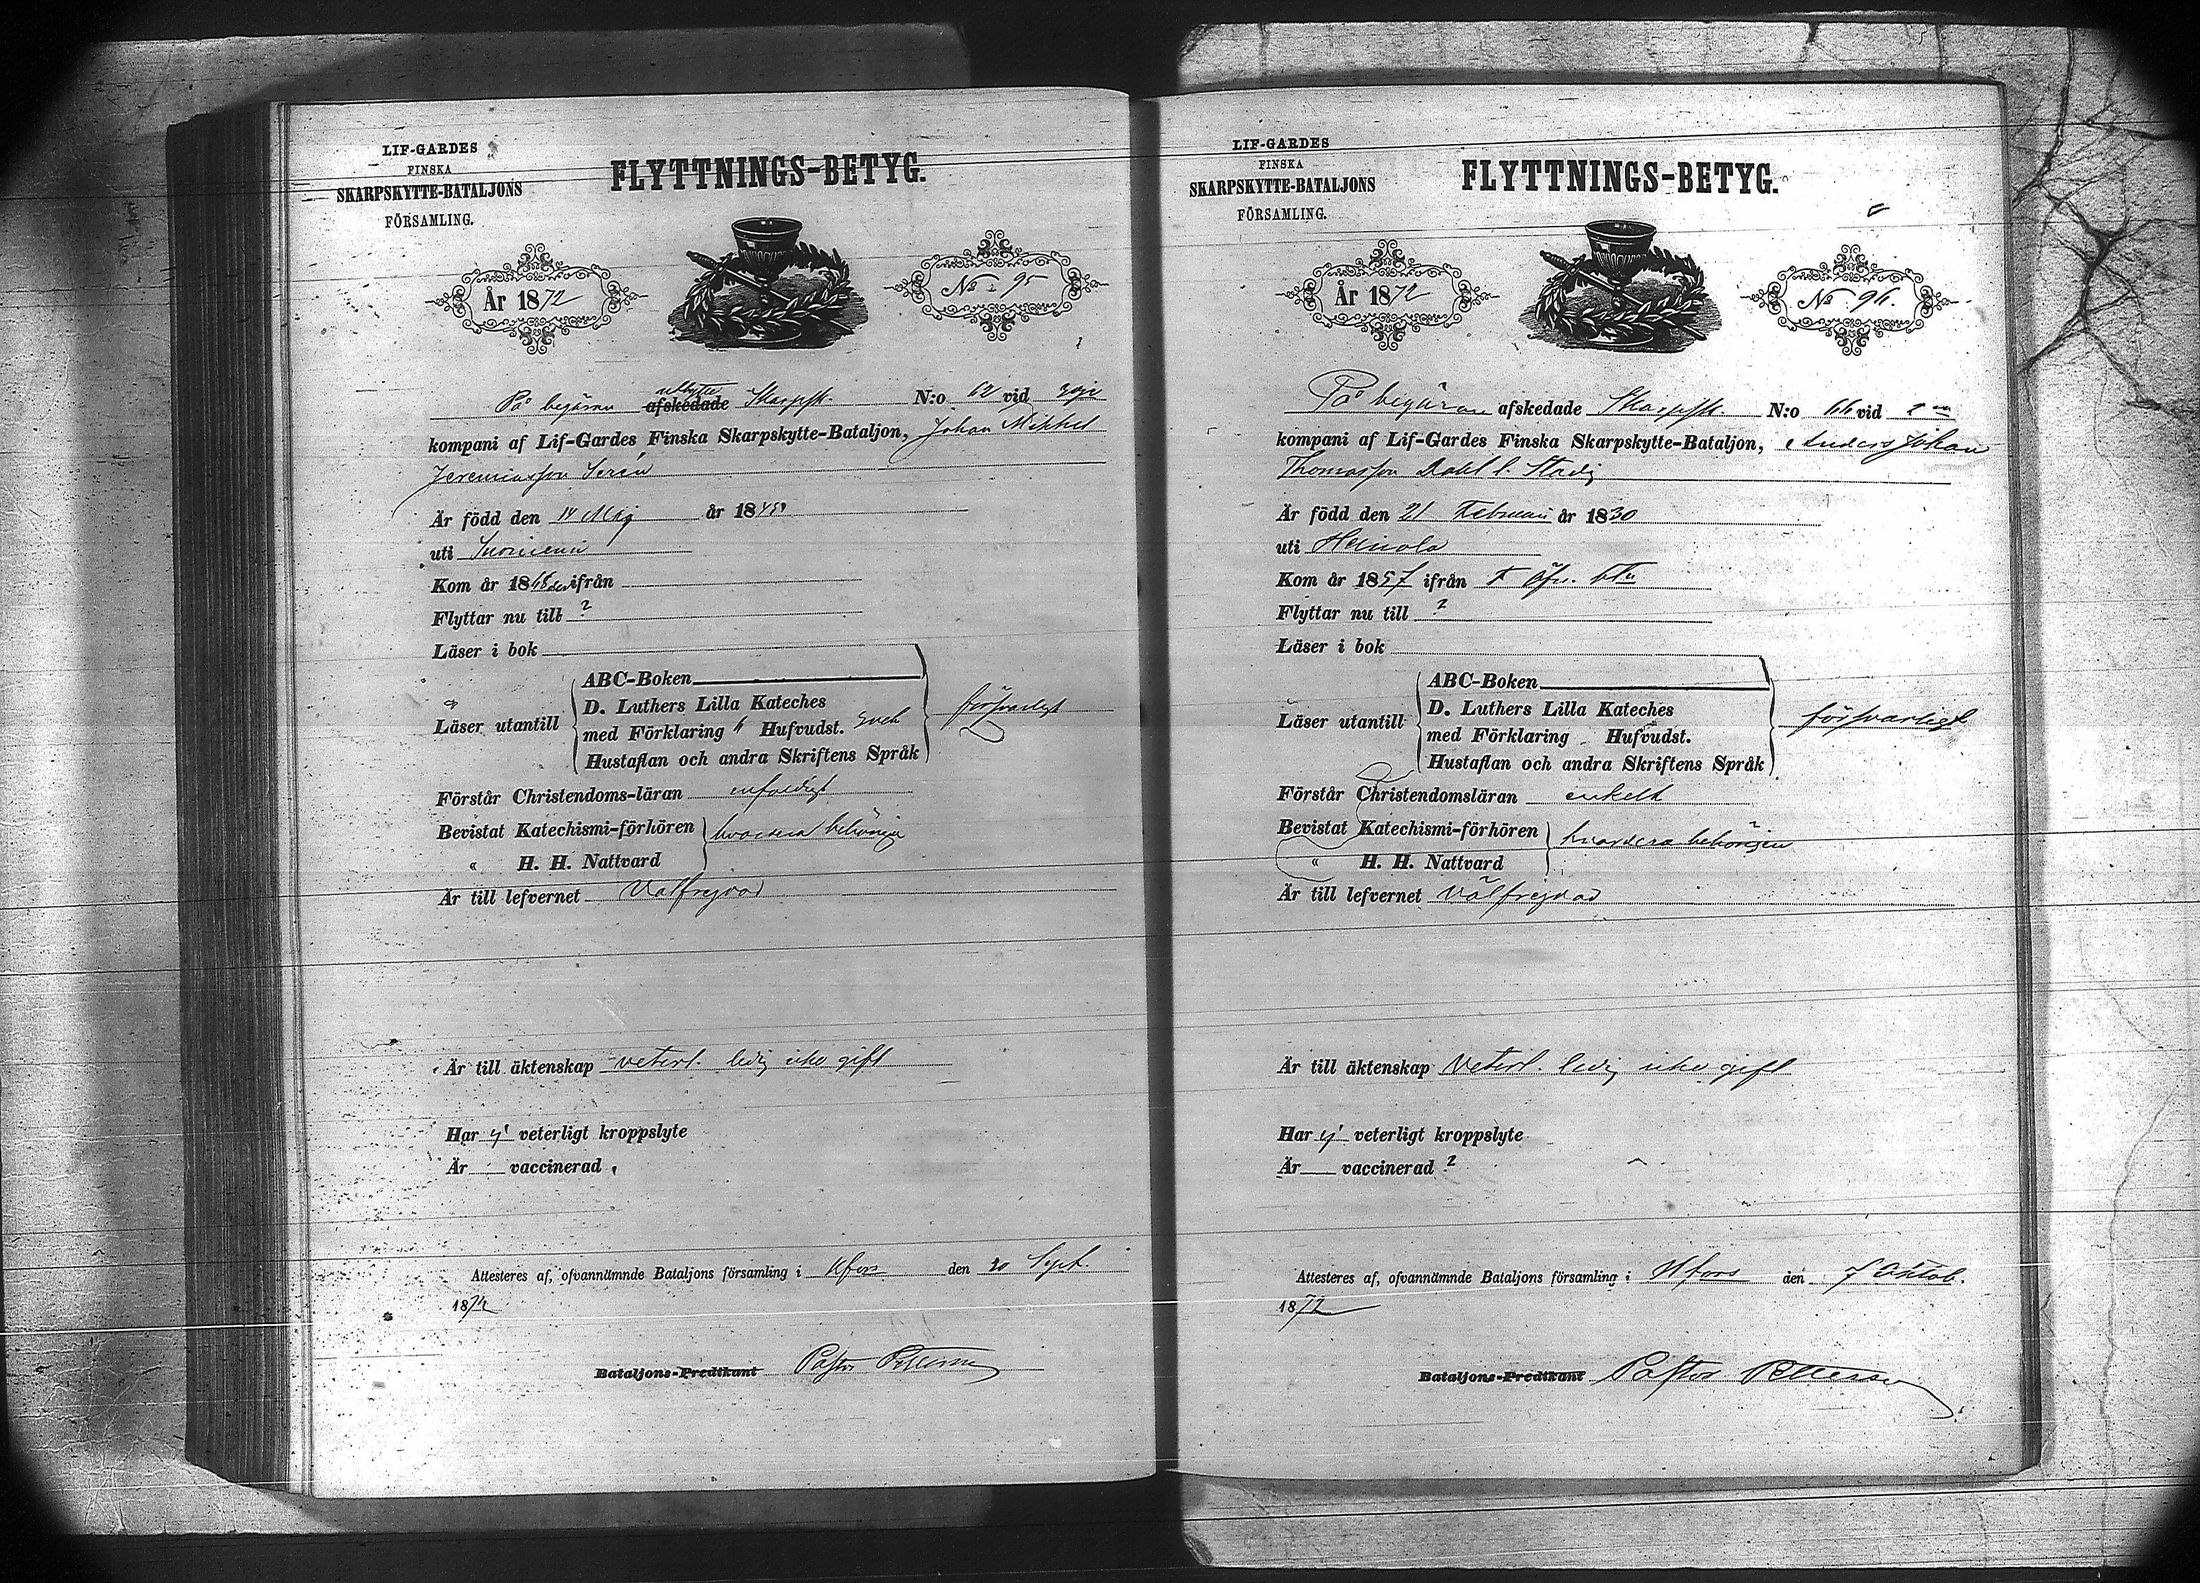 LIF-GARDES
FINSKA
SKARPSKYTTE-BATALJONS
FÖRSAMLING.
FLYTTNINGS-BETYG.
År 1872
No 95
På begäran utbytte afskedade Skarpsk. N:o 62 vid
kompani af Lif-Gardes Finska Skarpskytte-Bataljon, Johan Mikkel
Jeremiasson Serén
Är född den 14 Maj år 184
uti Suoniemi
Kom år 1868 ifrån
Flyttar nu till ?
Läser i bok
Läser utantill
ABC-Boken
D. Luthers Lilla Kateches
med Förklaring Hufvudst.
Hustaflan och andra Skriftens Språk
försvarligt
Förstår Christendoms-läran enfaldigt
Bevistat Katechismi-förhören
" H. H. Nattvard
hvardera behörigen
Är till lefvernet Välfrejdad
Är till äktenskap veterl. ledig icke gift
Har ej veterligt kroppslyte
Är vaccinerad
Attesteres af, ofvannämnde Bataljons församling i Hfors den 20 Sept.
1872
Bataljons-Predikant Pastor Pettersson
LIF-GARDES
FINSKA
SKARPSKYTTE-BATALJONS
FÖRSAMLING.
FLYTTNINGS-BETYG.
År 1872
No 96.
På begäran afskedade Skarpsk. N:o 66 vid 2
kompani af Lif-Gardes Finska Skarpskytte-Bataljon, Anders Johan
Thomasson Dahl l. Stadig
Är född den 21 Februari år 1830
uti Heinola
Kom år 1857 ifrån
Flyttar nu till ?
Läser i bok
Läser utantill
ABC-Boken
D. Luthers Lilla Kateches
med Förklaring Hufvudst.
Hustaflan och andra Skriftens Språk
försvarligt
Förstår Christendomsläran enkelt
Bevistat Katechismi-förhören
" H. H. Nattvard
hvardera behörigen
Är till lefvernet Välfrejdad
Är till äktenskap Veterl. ledig icke gift
Har ej veterligt kroppslyte
Är vaccinerad ?
Attesteres af, ofvannämnde Bataljons församling i Hfors den 7 Oktob.
1872
Bataljons-Predikant Pastor Pettersson